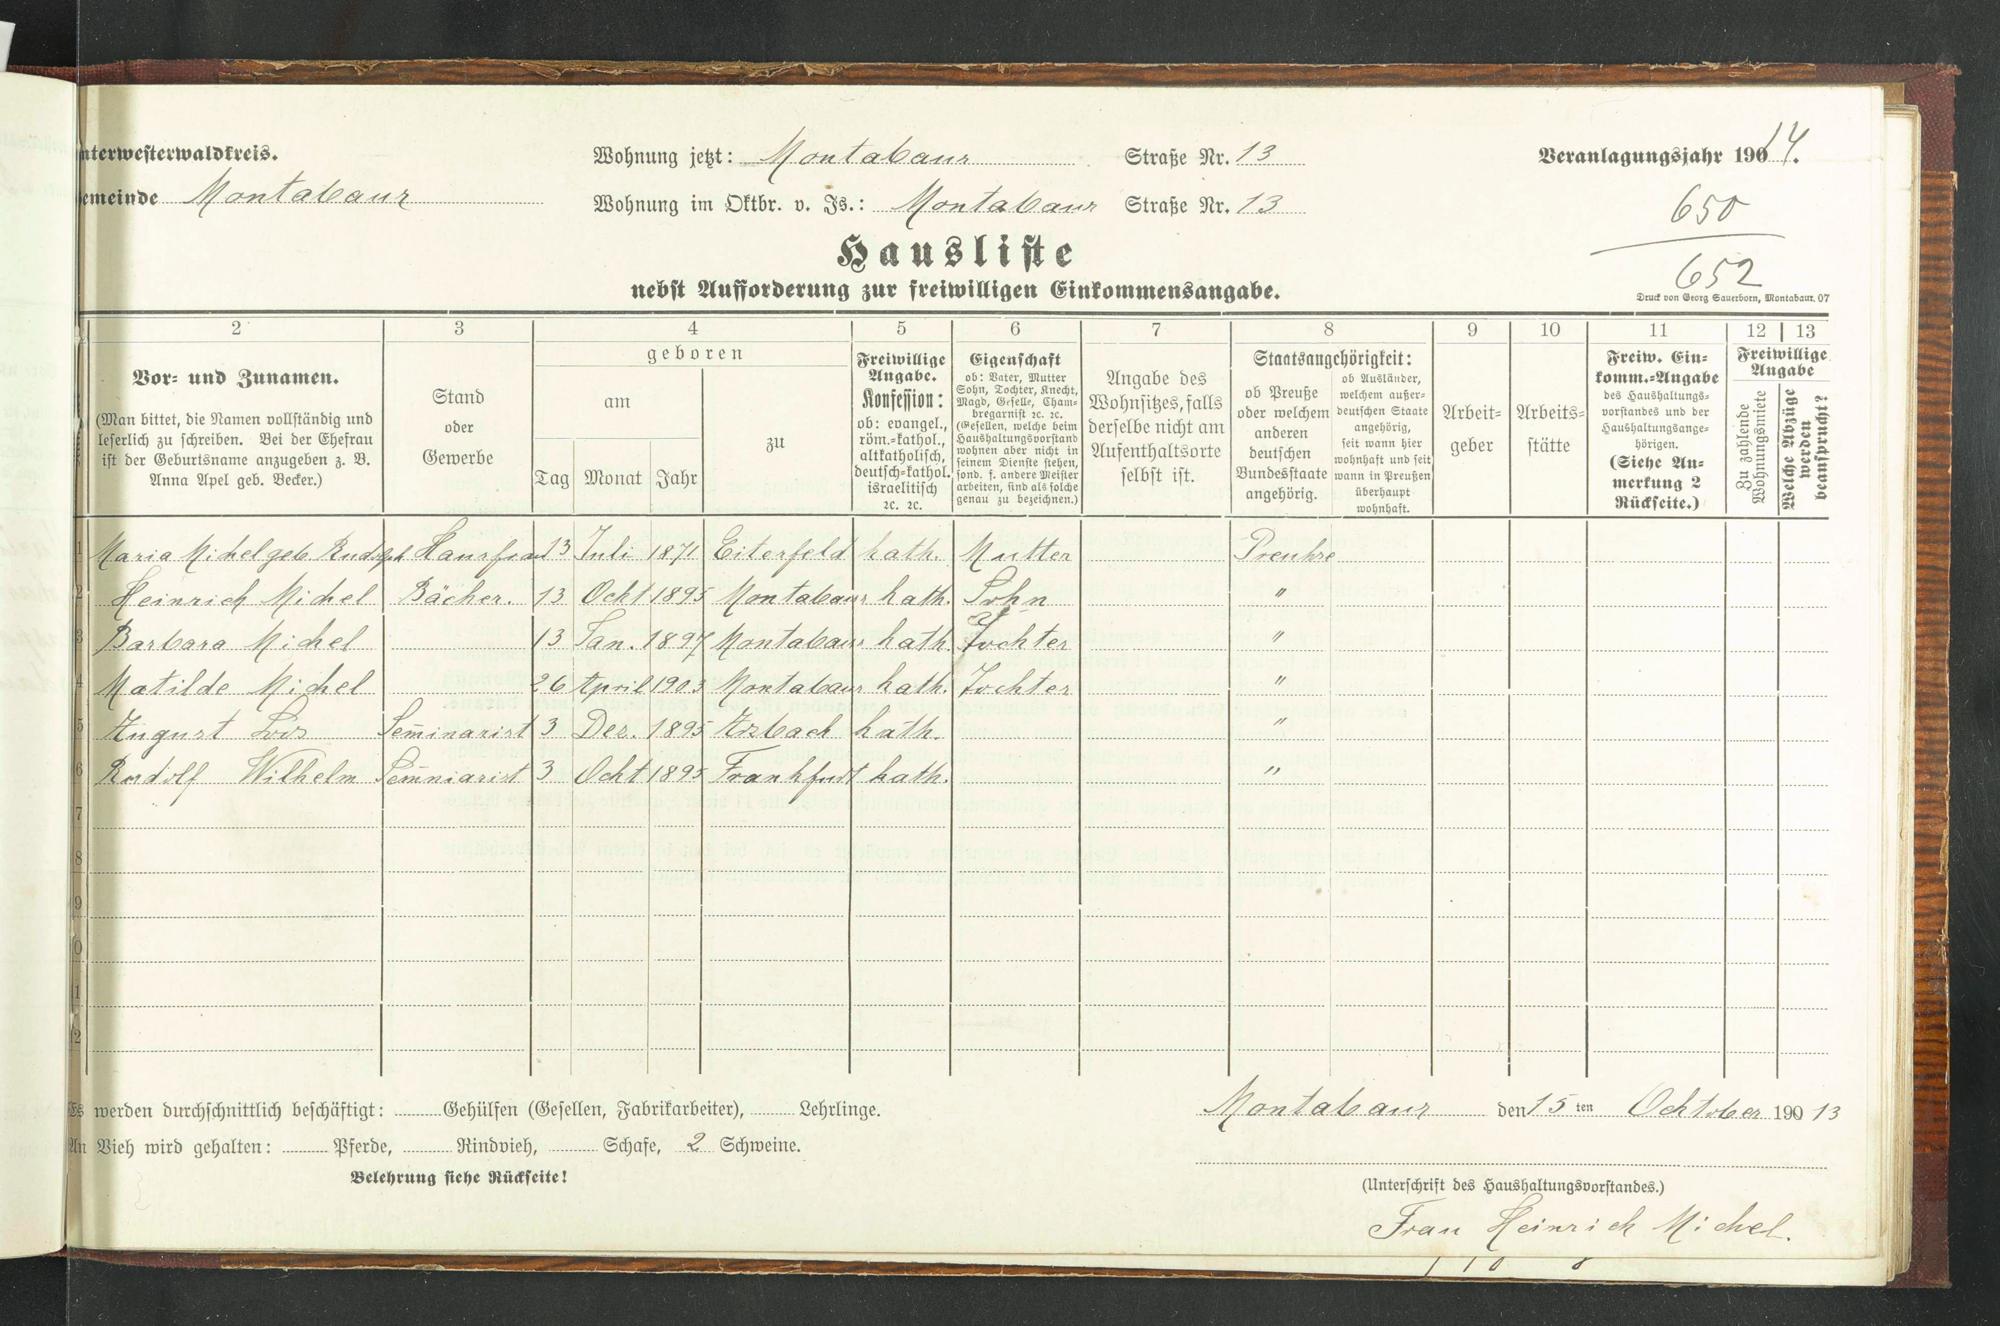 nterwesterwaldkreis. Wohnung jetzt: Montabaur Straße Nr. 13 Veranlagungsjahr 19014.
emeinde Montabaur Wohnung im Oktbr. v. Js.: Montabaur Straße Nr. 13
650
652
Hausliste
nebst Aufforderung zur freiwilligen Einkommensangabe.
Druck von Georg Sauerborn, Montabaur. 07
2 3 4 5 6 7 8 9 10 11 12 13
Vor- und Zunamen.
(Man bittet, die Namen vollständig und
leserlich zu schreiben. Bei der Ehefrau
ist der Geburtsname anzugeben z. B.
Anna Apel geb. Becker.)
Stand
oder
Gewerbe
geboren
am
zu
Tag Monat Jahr
Freiwillige
Angabe.
Konfession:
ob: evangel.,
röm.-kathol.,
altkatholisch,
deutsch-kathol.
israelitisch
ꝛc. ꝛc.
Eigenschaft
ob: Vater, Mutter
Sohn, Tochter, Knecht,
Magd, Geselle, Cham-
bregarnist ꝛc. ꝛc.
(Gesellen, welche beim
Haushaltungsvorstand
wohnen aber nicht in
seinem Dienste stehen,
sond. f. andere Meister
arbeiten, sind als solche
genau zu bezeichnen.)
Angabe des
Wohnsitzes, falls
derselbe nicht am
Aufenthaltsorte
selbst ist.
Staatsangehörigkeit:
ob Preuße
oder welchem
anderen
deutschen
Bundesstaate
angehörig.
ob Ausländer,
welchem außer-
deutschen Staate
angehörig,
seit wann hier
wohnhaft und seit
wann in Preußen
überhaupt
wohnhaft.
Arbeit-
geber
Arbeits-
stätte
Freiw. Ein-
komm.-Angabe
des Haushaltungs-
vorstandes und der
Haushaltungsange-
hörigen.
(Siehe An-
merkung 2
Rückseite.)
Freiwillige
Angabe
Zu zahlende
Wohnungsmiete
Welche Abzüge
werden
beansprucht?
1 Maria Michel geb. Rudolph Hausfrau 13 Juli 1871 Eiterfeld kath. Mutter Preuhse
2 Heinrich Michel Bäcker. 13 Ockt 1895 Montabaur kath. Sohn "
3 Barbara Michel 13 Jan. 1897 Montabaur kath. Tochter "
4 Matilde Michel 26 April 1903 Montabaur kath. Tochter "
5 August Seminarist 3 Dez. 1895 Arzbach kath. "
6 Rudolf Wilhelm Seminarist 3 Ockt 1895 Frankfurt kath. "
7
8
9
0
1
2
Es werden durchschnittlich beschäftigt: Gehülfen (Gesellen, Fabrikarbeiter), Lehrlinge.
An Vieh wird gehalten: Pferde, Rindvieh, Schafe, 2 Schweine.
Belehrung siehe Rückseite!
Montabaur den 15 ten Ocktober 190 13
(Unterschrift des Haushaltungsvorstandes.)
Frau Heinrich Michel.